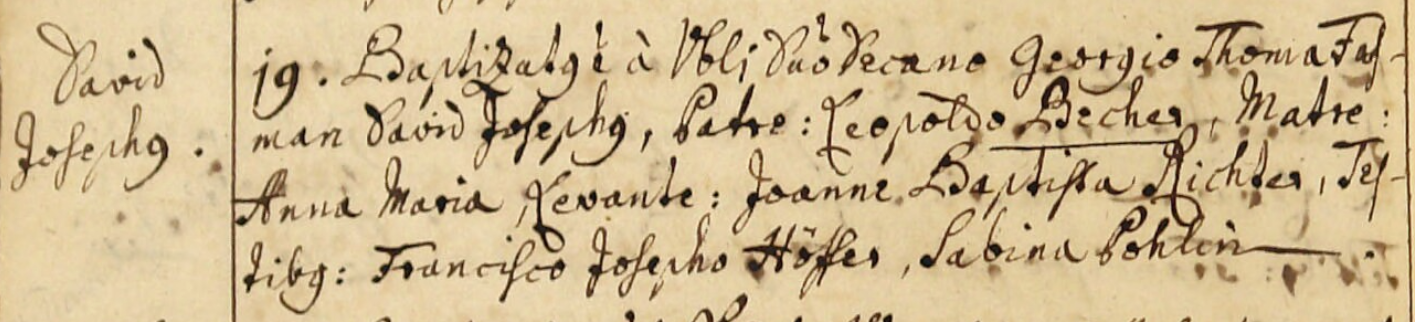 David
Josephꝰ.
19. Baptizatꝰ è à Vbli Dno Decano Georgio Thoma Faſ-
man David Josephꝰ, Patre: Leopoldo Becher, Matre:
Anna Maria, Levante: Joanne Baptiſta Richter, Teſ-
tibꝰ: Franciſco Josepho Höffer, Sabina Pohlin